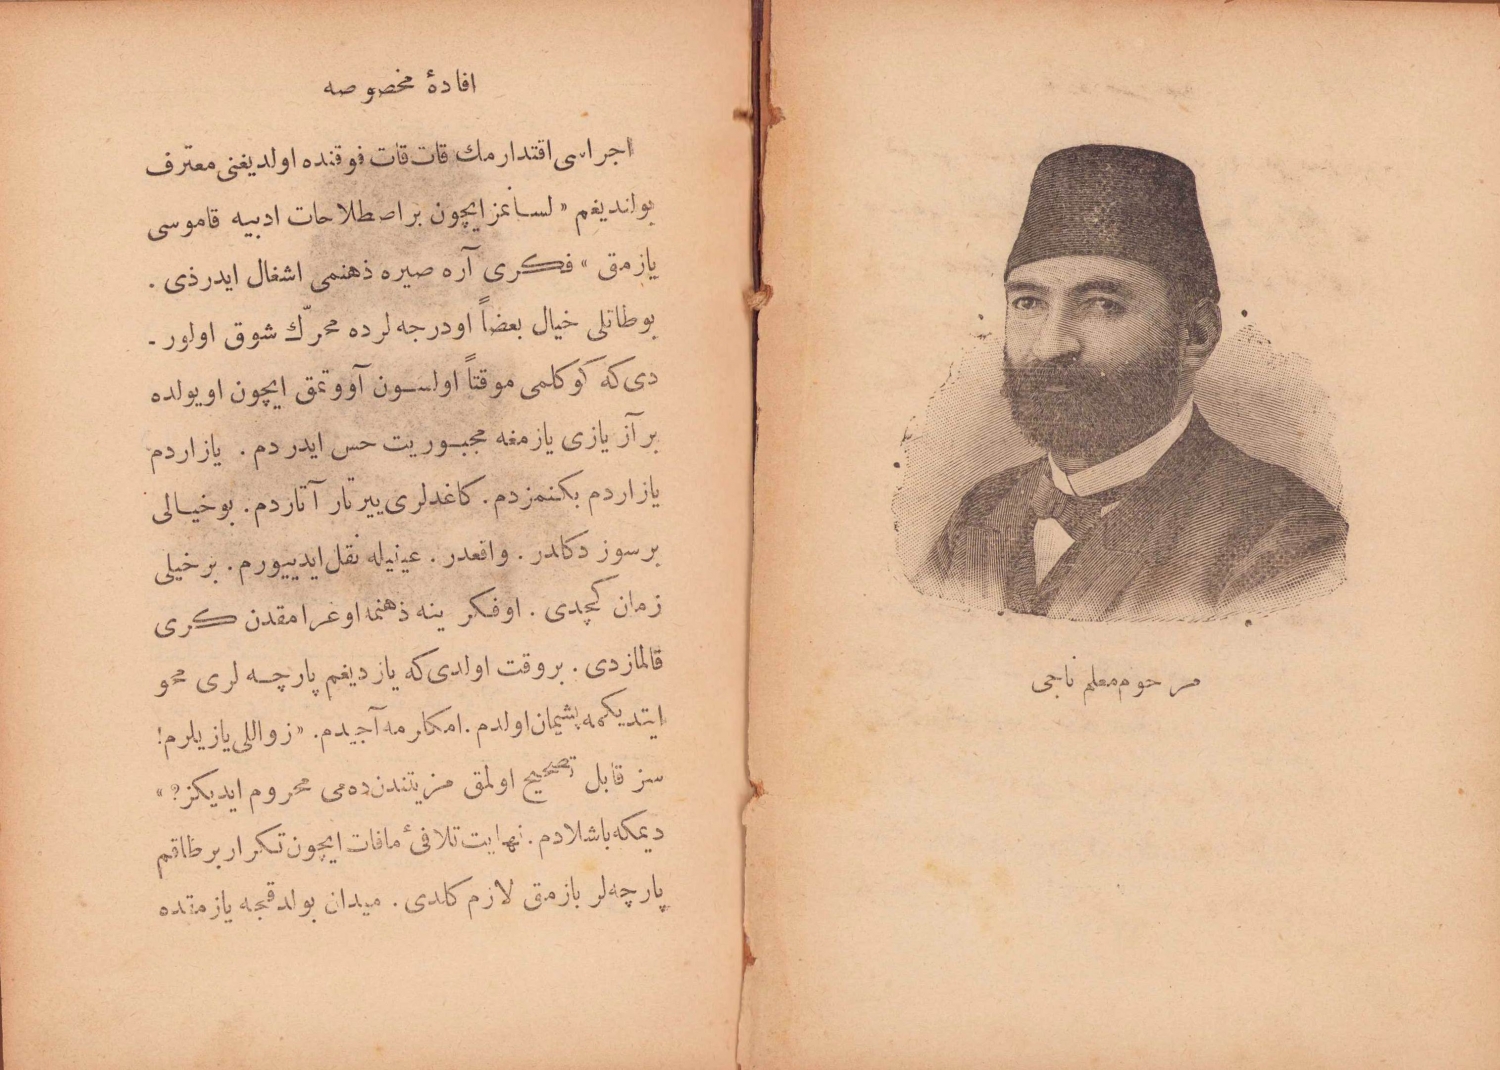 مرحوم معلم ناجی
افادهٔ مخصوصه
اجراسی اقتدارمك قات قات فوقنده اولدیغنی معترف
بولندیغم « لسانمزایچون براصطلاحات ادبیه قاموسی
یازمق » فكری آره صیره ذهنمی اشغال ایدرذی .
بوطاتلی خیال بعضاً اودرجه‌لرده محرّك شوق اولور ـ
دی‌كه كوكلمی موقتاً اولسون آووتمق ایچون اویولده
برآز یازی یازمغه مجبوریت حس ایدردم . یازاردم
یازاردم بكنمزدم . كاغدلری ییرتار آتاردم . بوخیالی
برسوز دكلدر . واقعدر . عینیله نقل ایدییورم . برخیلی
زمان كچدی . اوفكر ینه ذهنمه اوغرامقدن كری
قالمازدی . بروقت اولدی‌كه یازدیغم پارچه‌لری محو
ایتدیكمه پشیمان اولدم . امكلرمه آجیدم . « زواللی یازیلرم!
سز قابل تصحیح اولمق مزیتندن‌ده‌می محروم ایدیكز؟ »
دیمكه باشلادم . نهایت تلافیٔ مافات ایچون تكرار برطاقم
پارچه‌لر یازمق لازم كلدی . میدان بولدقجه یازمقده